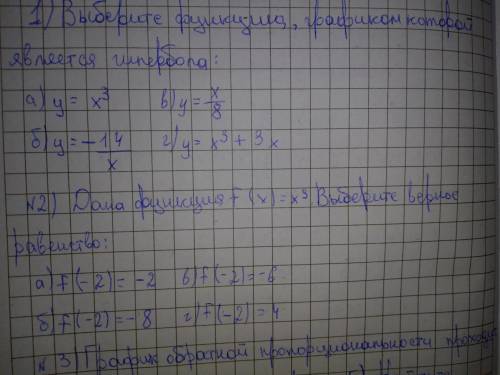 1) Выберите функцию, графиком которой
является гипербола:
а) y = x³ в) y = x/8
б) y = -14/x г) y = x³ + 3x
№2) Дана функция f(x) = x³. Выберите верное
равенство:
а) f(-2) = -2 в) f(-2) = -6
б) f(-2) = -8 г) f(-2) = 4
№3) График обратной пропорциональности